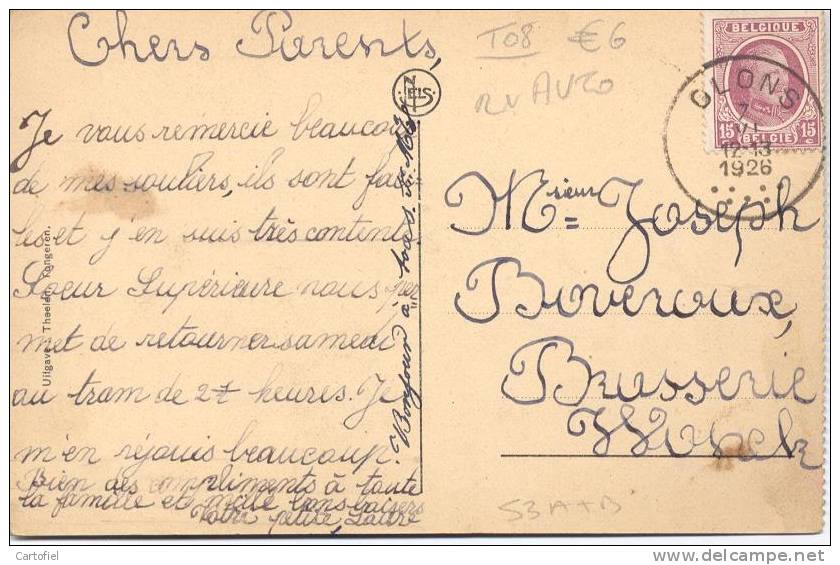 Chers Parents,
Je vous remercie beaucou
de mes souliers, ils sont faci
les et j'en suis très contente
Soeur Supérieure nous per
met de retourner samedi
au tram de 2 heures. Je
m'en réjouis beaucoup.
Bien des compliments à toute
la famille et mille bons baisers
Votre petite, Laure
Bonjour à tous
Uitgave Theelen, Tongeren.
T08 €6
RV AUZO
BELGIQUE
15 15
BELGIE
GLONS
12-13
1926
Mr=sieur Joseph
Boveroux,
Brasserie
S3 A+B
Cartofiel
http://www.delcampe.net